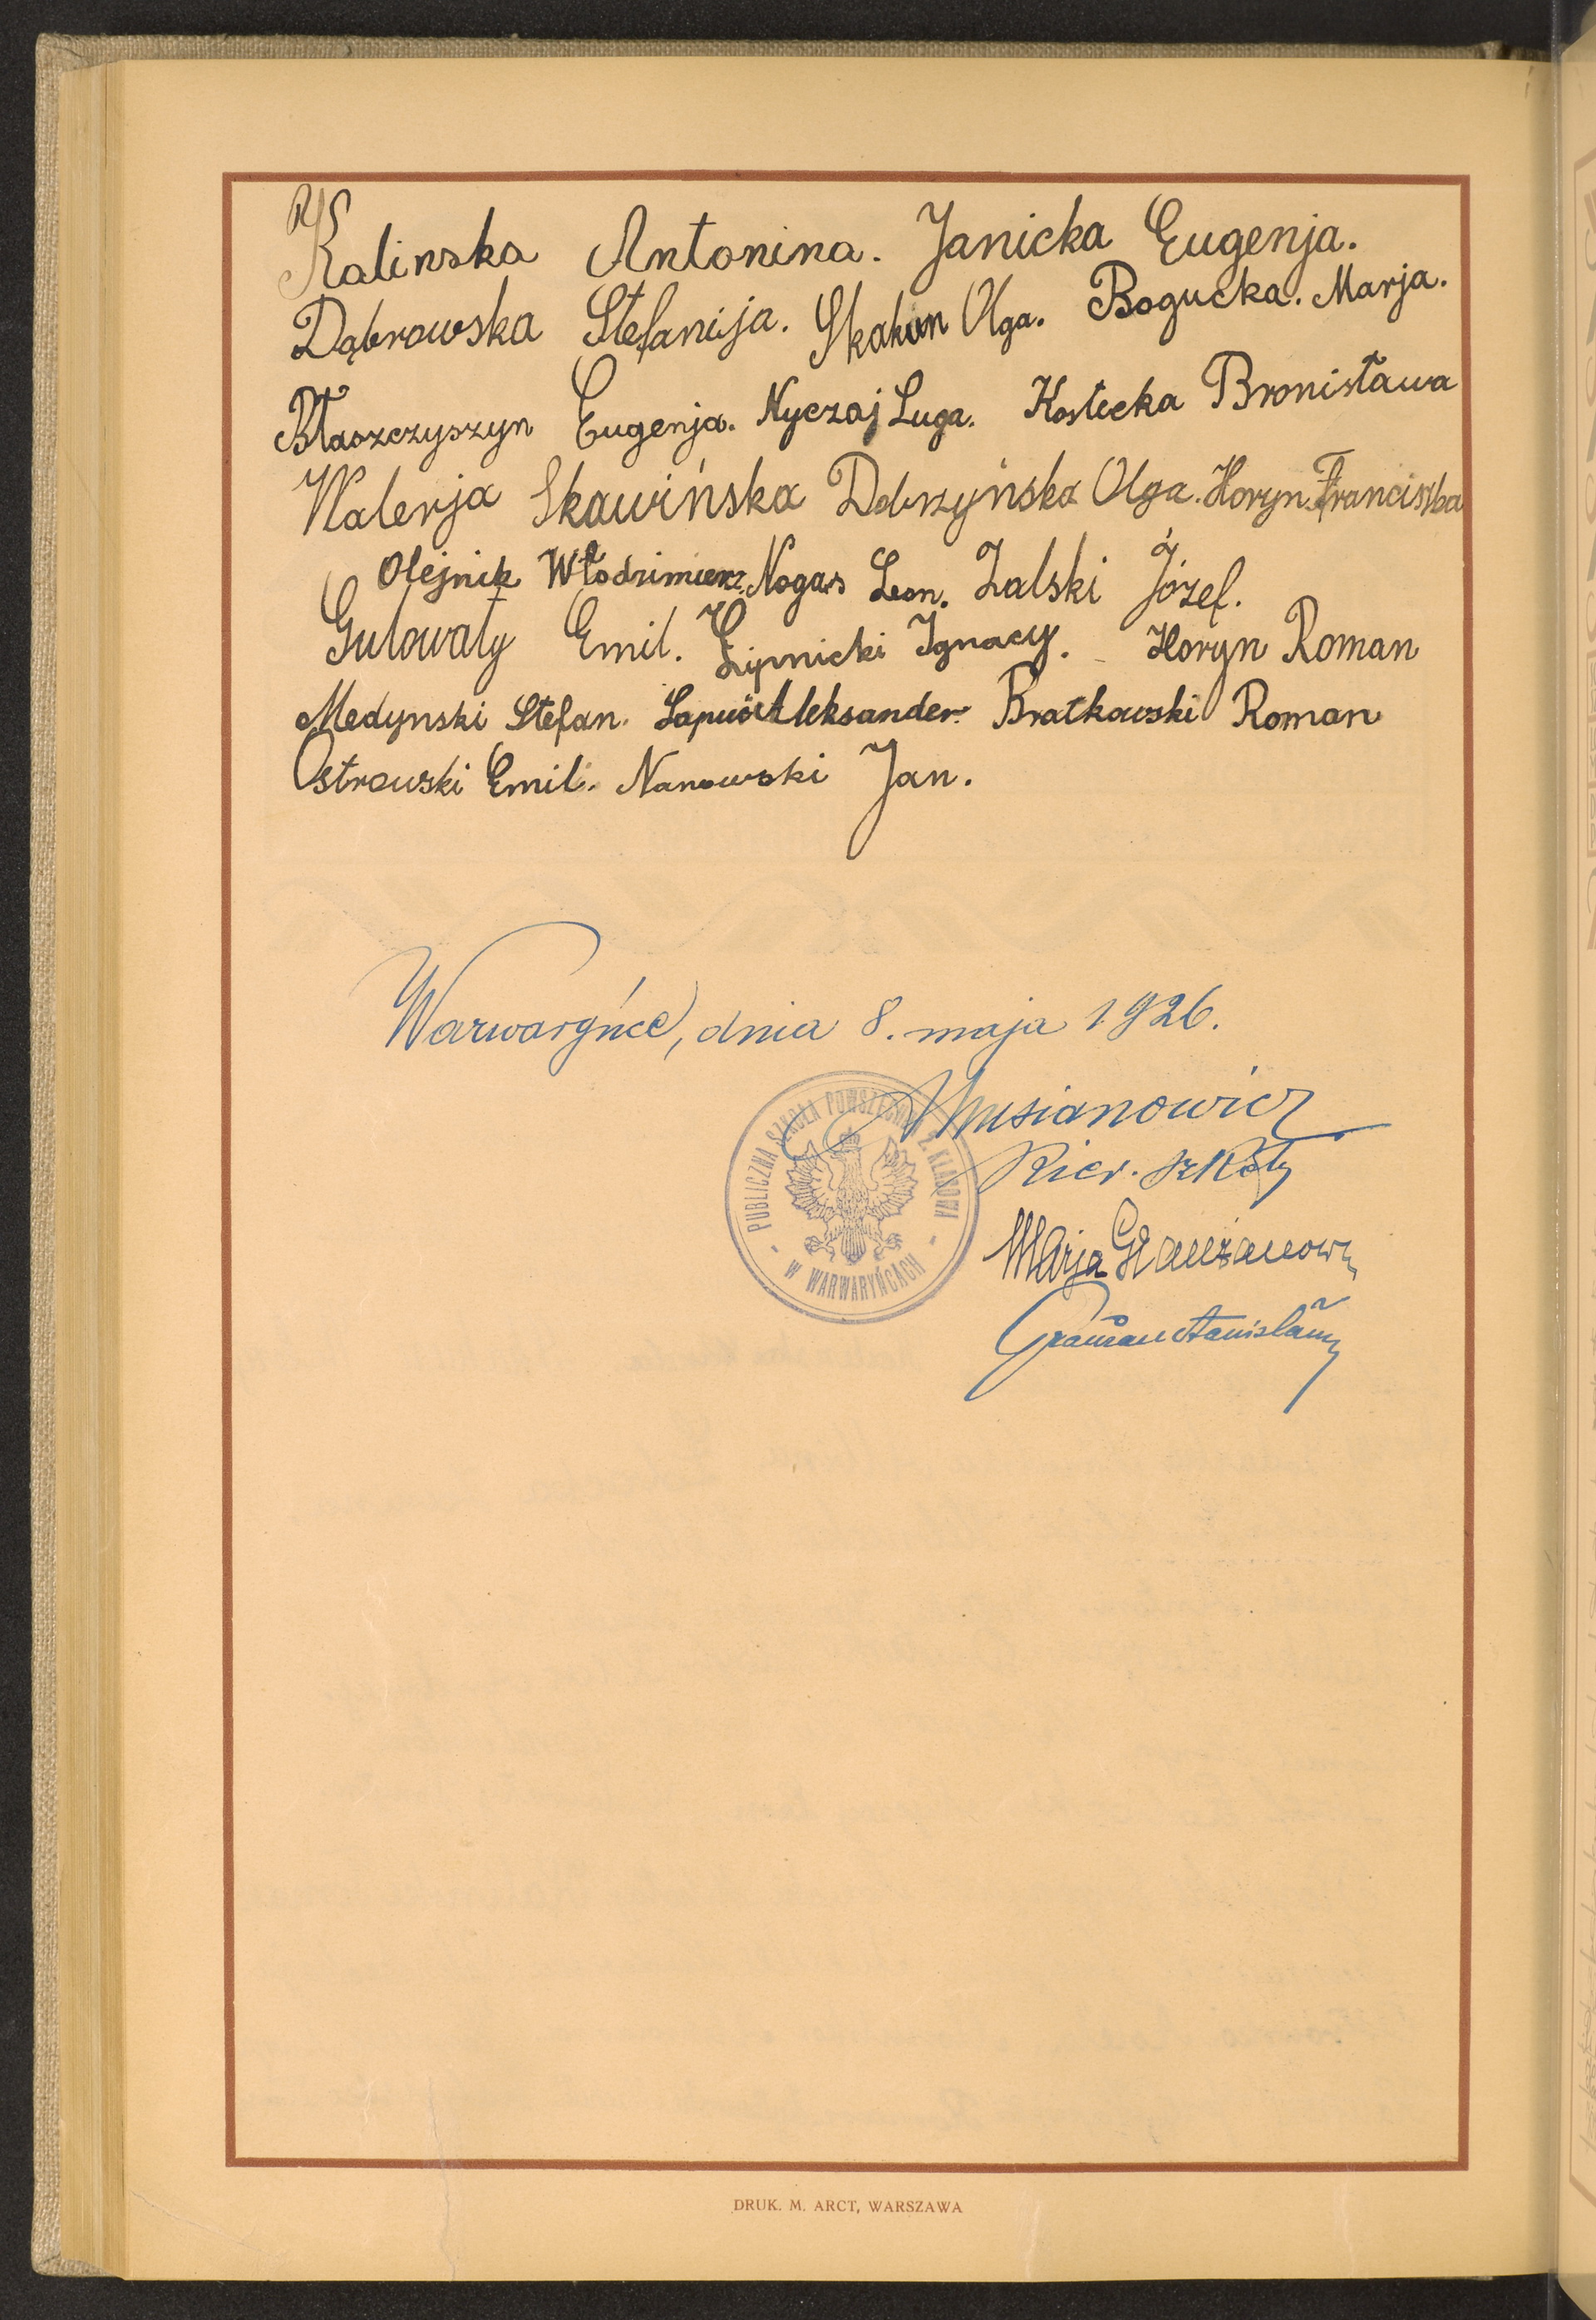 Kalinska Antonina. Janicka Eugenja.
Dąbrowska Stefanija. Skakun Olga. Bogucka. Marja.
Błaszczyszyn Eugenja. Nyczaj Luga. Kostecka Bronisława
Walerja Skawińska Dobrzyńska Olga. Horyn Franciszka
Olejnik Włodzimierz. Nogas Leon. Zalski Józef.
Gulowaty Emil. Lipnicki Ignacy. Horyn Roman
Medynski Stefan. Aleksander. Bratkowski Roman
Ostrowski Emil. Nanowski Jan.
Warwaryńce, dnia 8. maja 1926.
Musianowicz
Kier. szkoły
Marja
PUBLICZNA SZKOŁA POWSZECHNA 2 KLASOWA
W WARWARYŃCACH
DRUK. M. ARCT, WARSZAWA